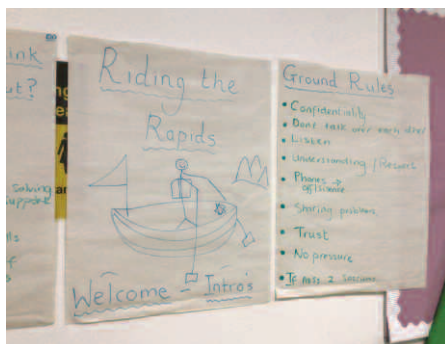 ink
ut?
solving
support
lls
f
s
Riding the
Rapids
Welcome - Intro's
Ground Rules
• Confidentiality
• Dont talk over each other
• Listen
• Understanding / Respect
• Phones →
off/silence
• Sharing problems
• Trust
• No pressure
• If miss 2 sessions